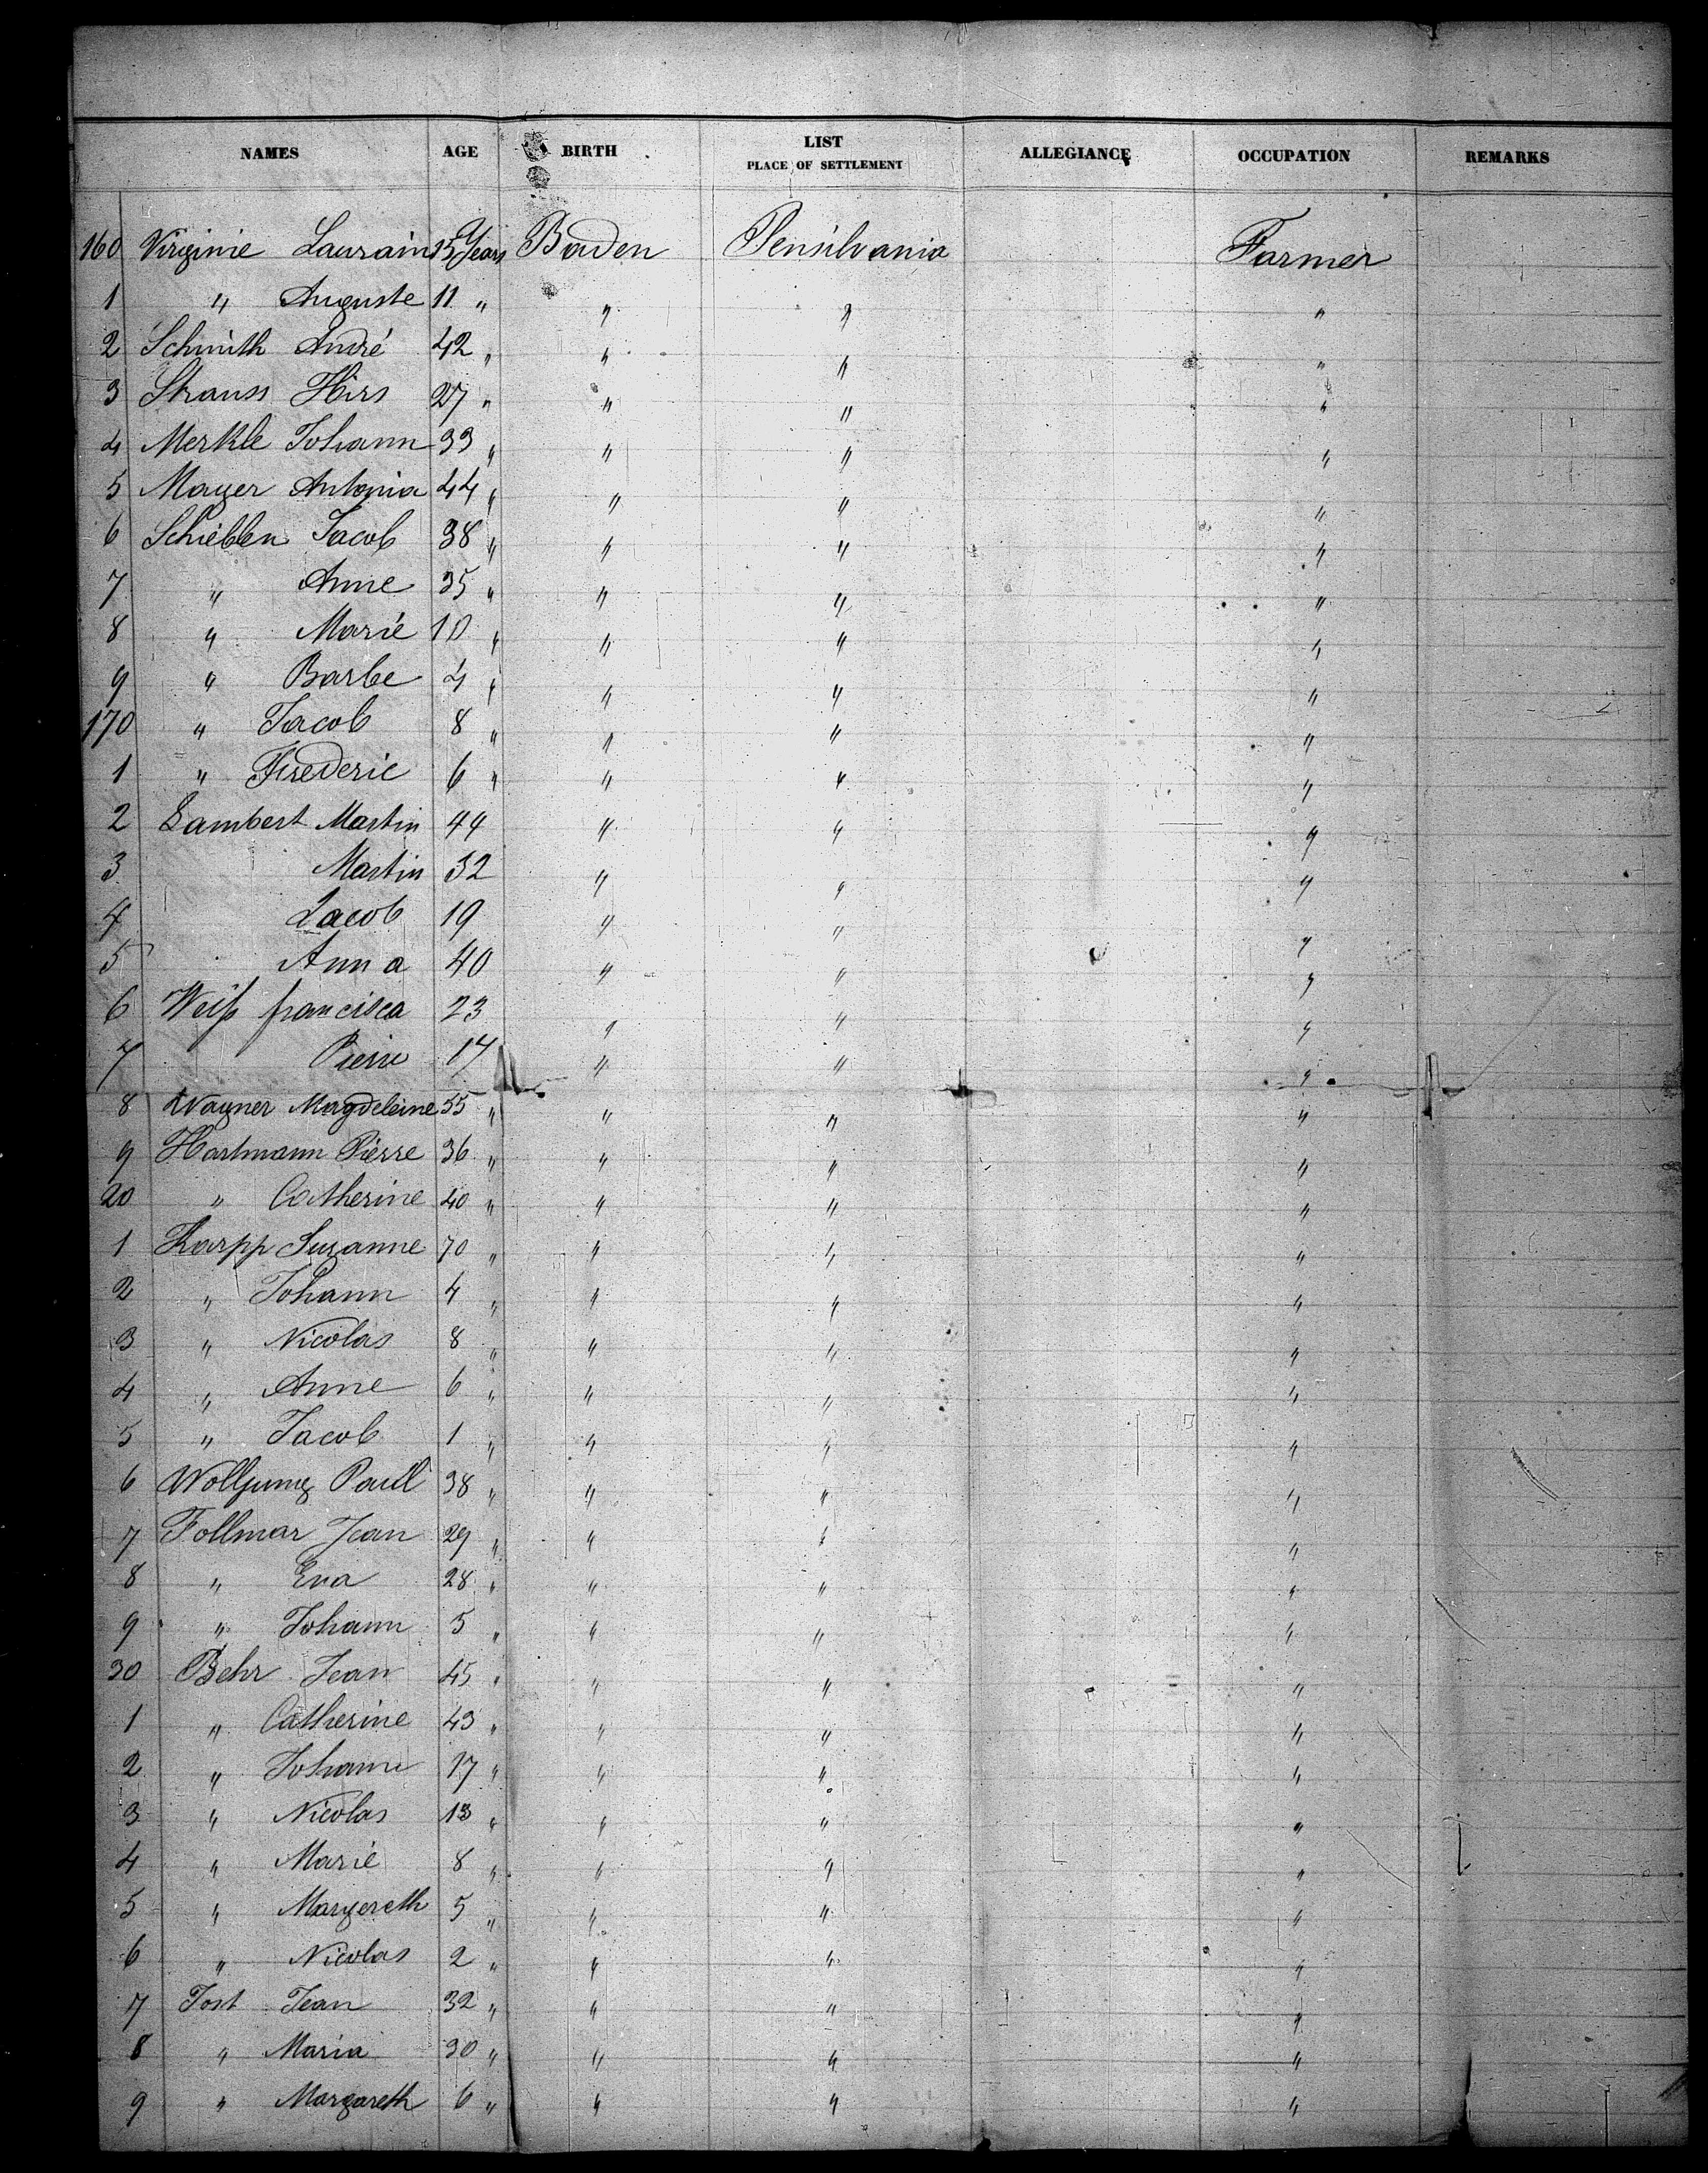 NAMES AGE BIRTH LIST PLACE OF SETTLEMENT ALLEGIANCE OCCUPATION REMARKS
160 Virginie Laurain 15 Years Baden Pensilvania Farmer
1 " Auguste 11 " " " "
2 Schmith André 42 " " " "
3 Strauss Hirs 27 " " " "
4 Merkle Johann 33 " " " "
5 Mayer Antonia 44 " " " "
6 Schieblen Jacob 38 " " " "
7 " Anne 35 " " " "
8 " Marie 10 " " " "
9 " Barbe 4 " " " "
170 " Jacob 8 " " " "
1 " Frederic 6 " " " "
2 Lambert Martin 44 " " "
3 Martin 32 " " "
4 Jacob 19 " " "
5 Anna 40 " " "
6 Weiß francisca 23 " " "
7 Pierre 17 " " "
8 Wagner Magdeleine 55 " " " "
9 Hartmann Pierre 36 " " " "
20 " Catherine 40 " " " "
1 Karpp Suzanne 70 " " " "
2 " Johann 4 " " " "
3 " Nicolas 8 " " " "
4 " Anne 6 " " " "
5 " Jacob 1 " " " "
6 Wolfgung Paul 38 " " " "
7 Follmar Jean 29 " " " "
8 " Eva 28 " " " "
9 " Johann 5 " " " "
30 Behr Jean 45 " " " "
1 " Catherine 43 " " " "
2 " Johann 17 " " " "
3 " Nicolas 13 " " " "
4 " Marie 8 " " " "
5 " Margereth 5 " " " "
6 " Nicolas 2 " " " "
7 Jost Jean 32 " " " "
8 " Maria 30 " " " "
9 " Margareth 6 " " " "